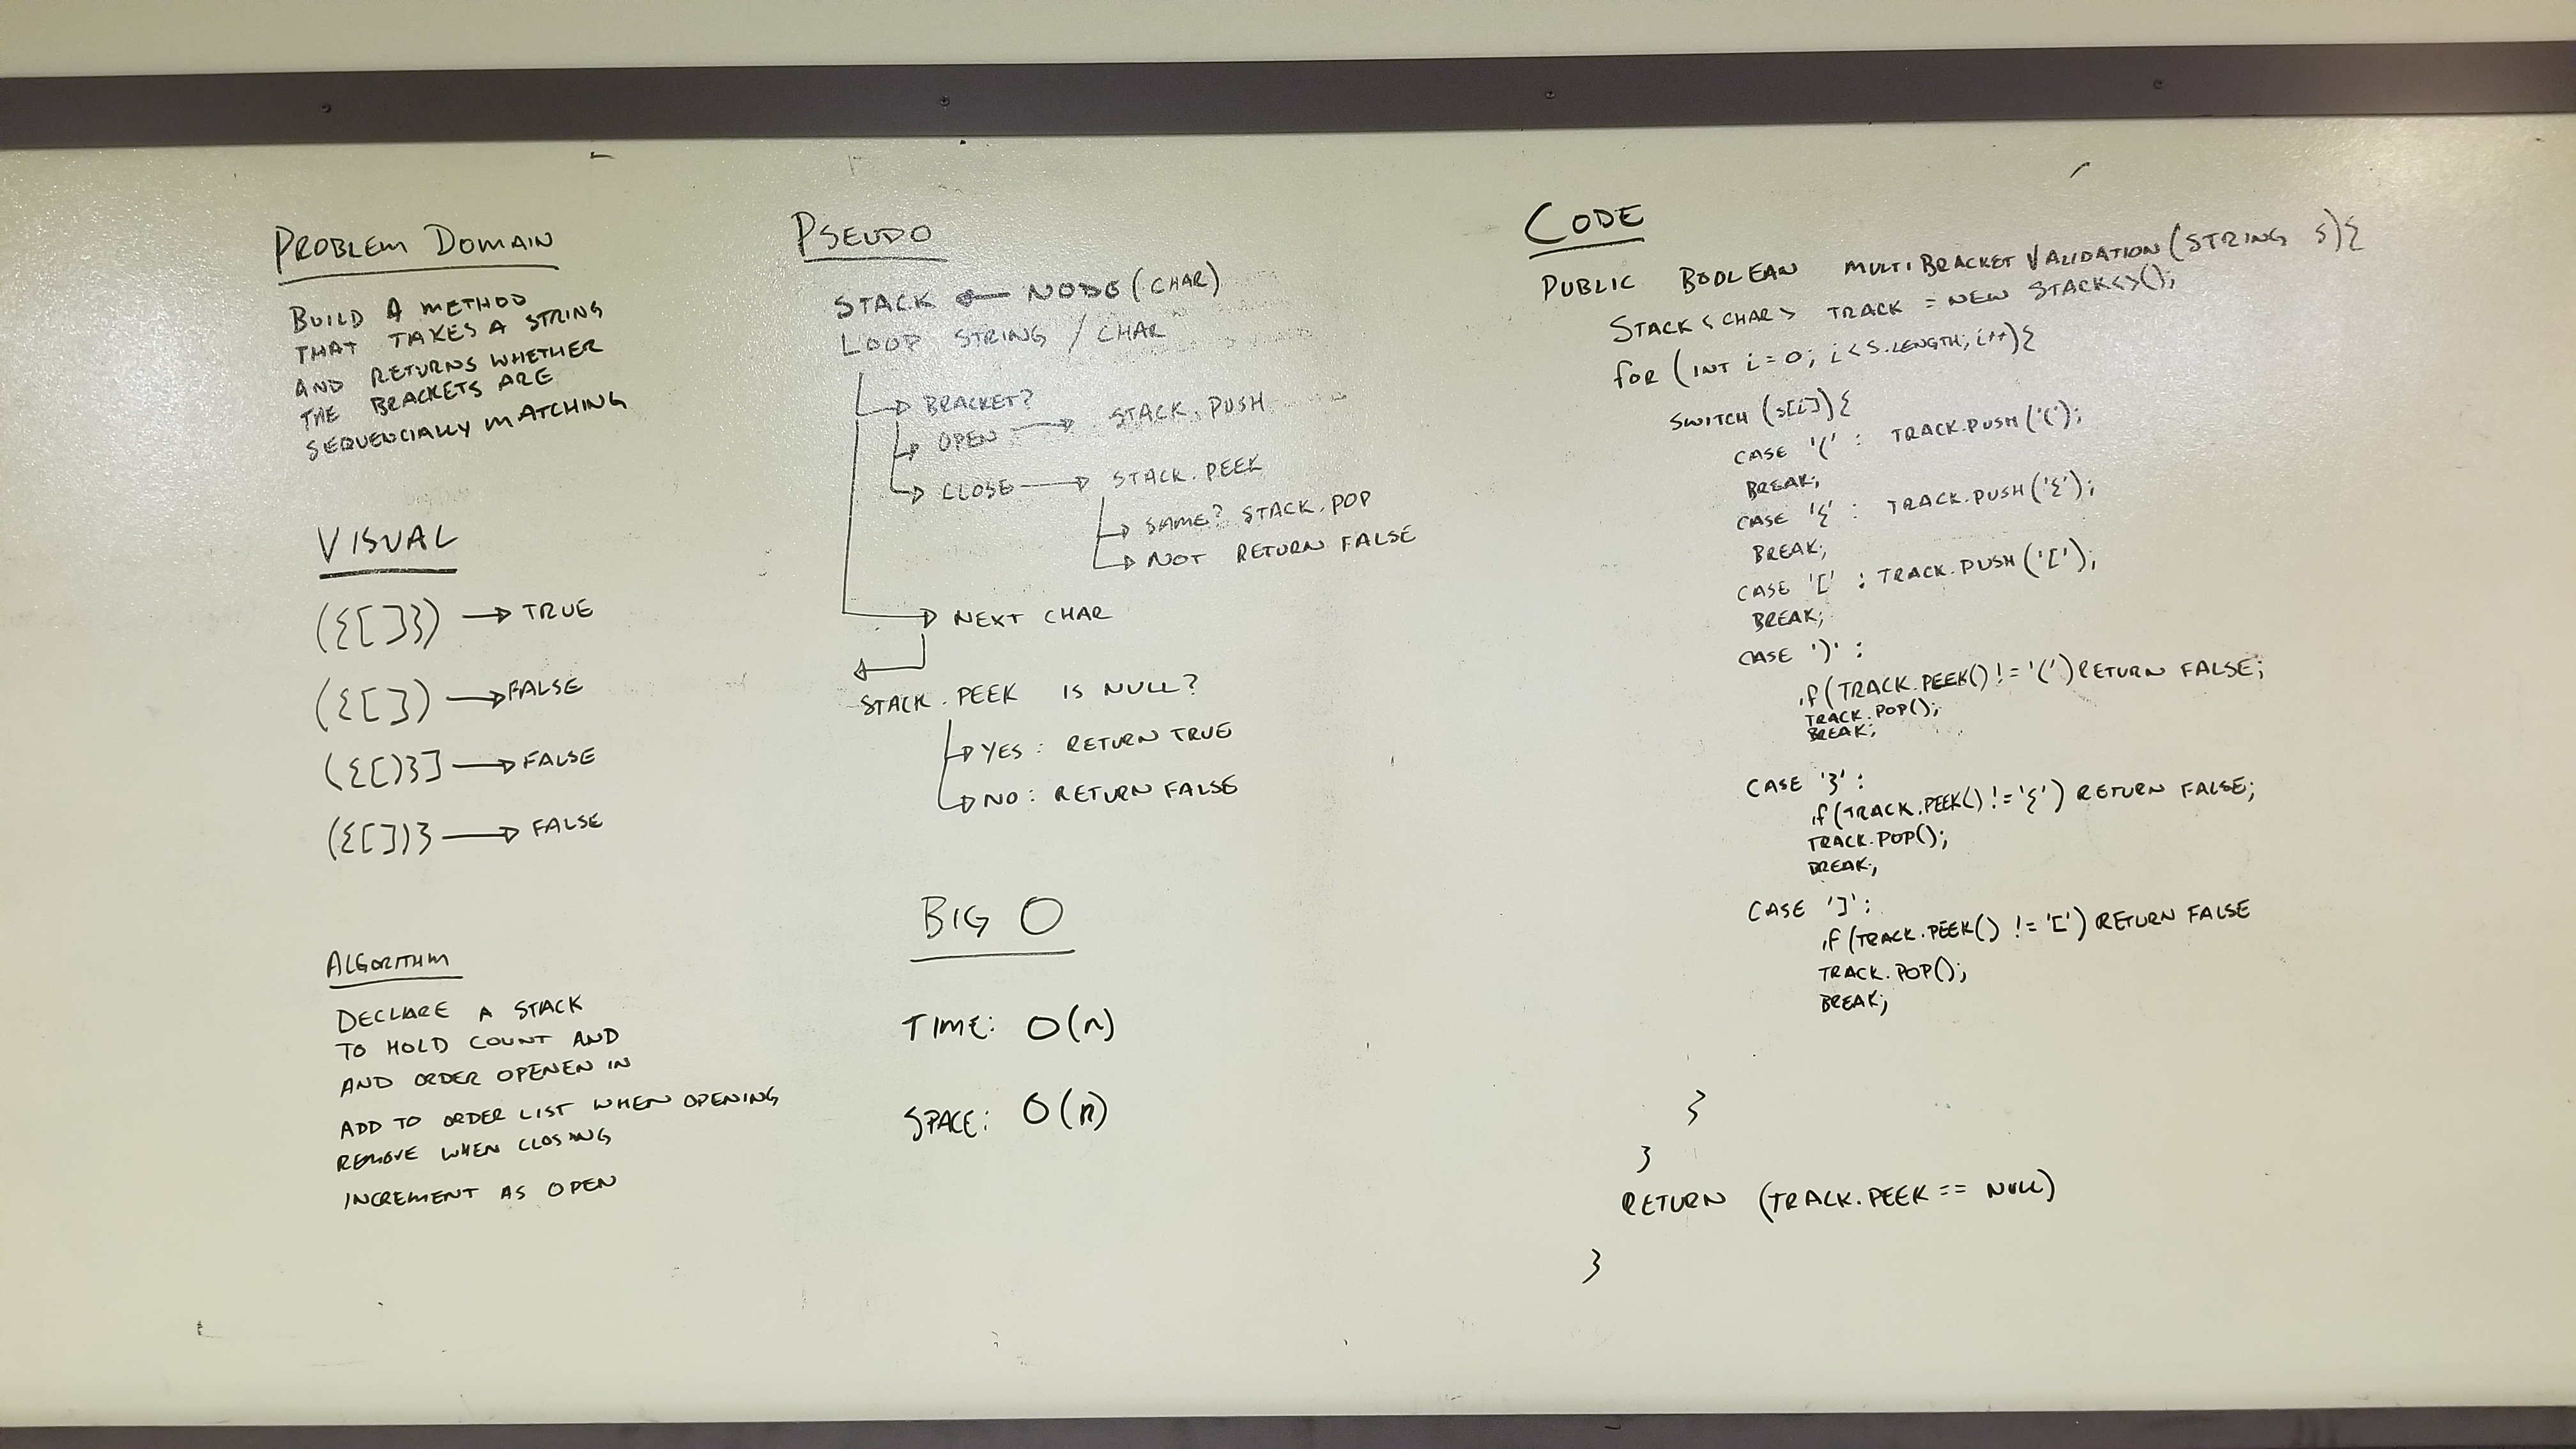 PROBLEM DOMAIN
BUILD A METHOD
THAT TAKES A STRING
AND RETURNS WHETHER
THE BRACKETS ARE
SEQUENCIALLY MATCHING
VISUAL
({[]}) → TRUE
({[]) → FALSE
({[)}] → FALSE
({[])} → FALSE
ALGORITHM
DECLARE A STACK
TO HOLD COUNT AND
AND ORDER OPENEN IN
ADD TO ORDER LIST WHEN OPENING
REMOVE WHEN CLOSING
INCREMENT AS OPEN
PSEUDO
STACK ← NODE (CHAR)
LOOP STRING / CHAR
BRACKET?
OPEN → STACK.PUSH
CLOSE → STACK.PEEK
SAME? STACK.POP
NOT RETURN FALSE
NEXT CHAR
STACK.PEEK IS NULL?
YES: RETURN TRUE
NO: RETURN FALSE
BIG O
TIME: O(n)
SPACE: O(n)
CODE
PUBLIC BOOLEAN MULTIBRACKETVALIDATION(STRING S){
STACK<CHAR> TRACK = NEW STACK<>();
FOR (INT i=0; i<S.LENGTH; i++){
SWITCH (S[i]){
CASE '(' : TRACK.PUSH('(');
BREAK;
CASE '{' : TRACK.PUSH('{');
BREAK;
CASE '[' : TRACK.PUSH('[');
BREAK;
CASE ')' :
if(TRACK.PEEK() != '(') RETURN FALSE;
TRACK.POP();
BREAK;
CASE '}' :
if(TRACK.PEEK() != '{') RETURN FALSE;
TRACK.POP();
BREAK;
CASE ']' :
if(TRACK.PEEK() != '[') RETURN FALSE
TRACK.POP();
BREAK;
}
}
RETURN (TRACK.PEEK == NULL)
}